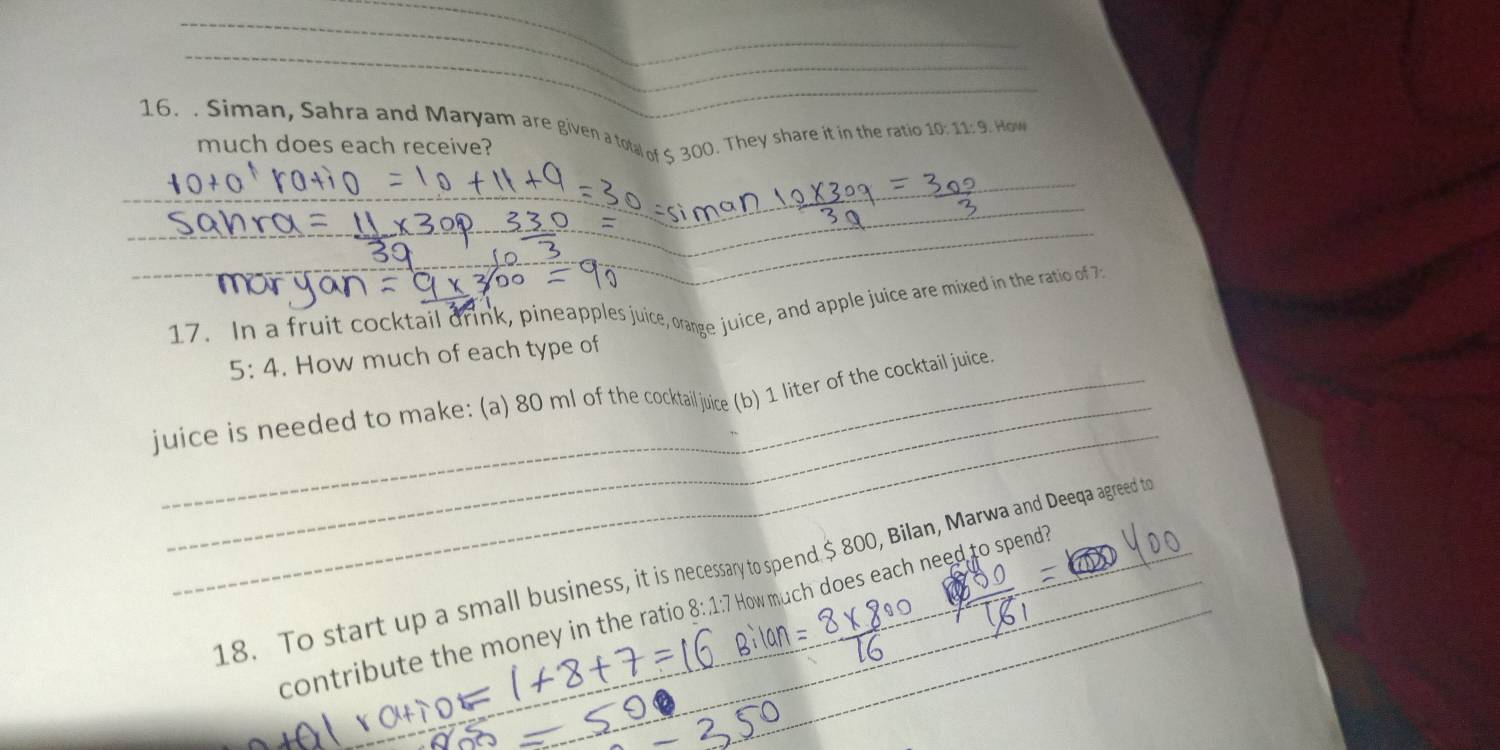 16. . Siman, Sahra and Maryam are given a total of $ 300. They share it in the ratio 10: 11: 9. How
much does each receive?
total ratio = 10 + 11 + 9 = 30 = siman 10 x 300 / 30 = 300 / 3
sahra = 11 x 300 / 30 330 / 3 =
maryan = 9 x 300 / 30 10 1 = 90
17. In a fruit cocktail drink, pineapples juice, orange juice, and apple juice are mixed in the ratio of 7:
5: 4. How much of each type of
juice is needed to make: (a) 80 ml of the cocktail juice (b) 1 liter of the cocktail juice.
18. To start up a small business, it is necessary to spend $ 800, Bilan, Marwa and Deeqa agreed to
contribute the money in the ratio 8: 1:7 How much does each need to spend?
total ratio = 1 + 8 + 7 = 16 Bilan = 8 x 800 / 16 = 400
= 50
350